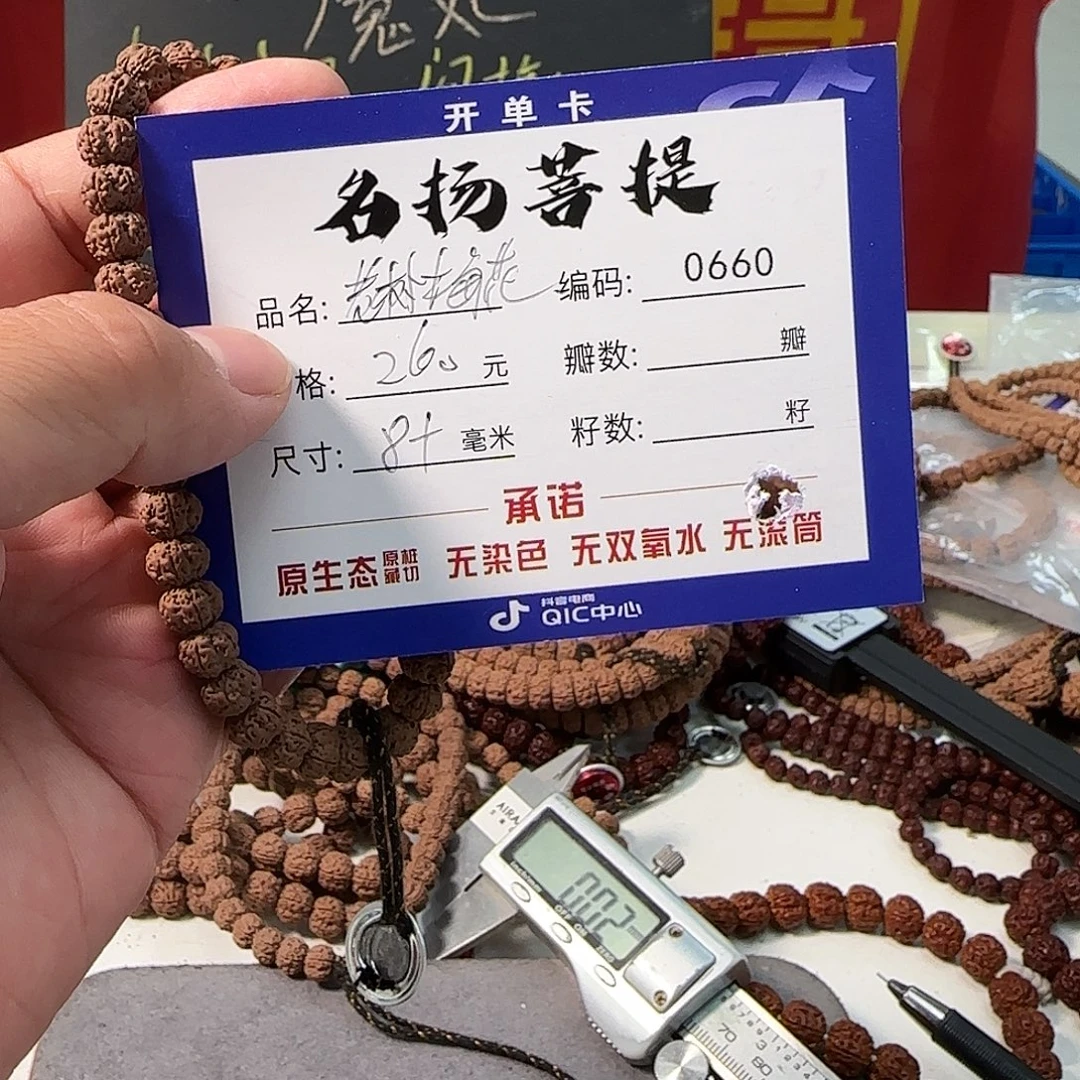 魔妃
开单卡
名扬菩提
品名: 老树大梅花 编码: 0660
格: 260 元 瓣数: 瓣
尺寸: 8+ 毫米 籽数: 籽
承诺
原生态 原桩藏切 无染色 无双氧水 无滚筒
抖音电商
QIC中心
AIRA
OFF/ON ZERO
70 80